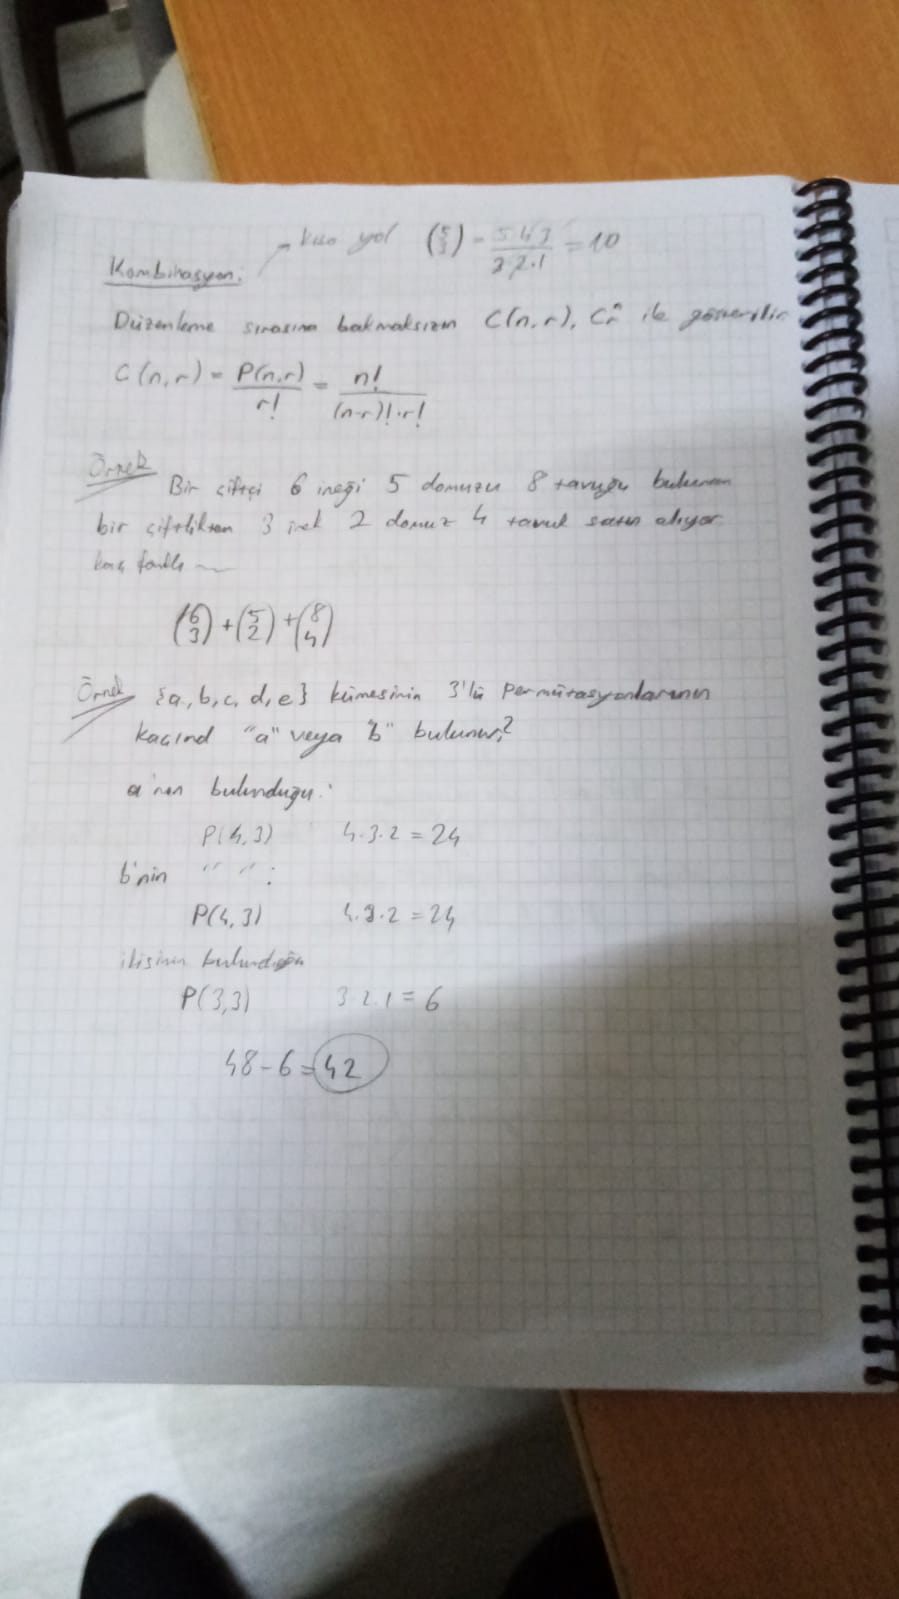 kısa yol (5 3) = 5.4.3 / 3.2.1 = 10
Kombinasyon:
Düzenleme sırasına bakmaksızın C(n,r), Cⁿᵣ ile gösterilir
C(n,r) = P(n,r) / r! = n! / (n-r)!.r!
Örnek
Bir çiftçi 6 ineği 5 domuzu 8 tavuğu bulunan
bir çiftlikten 3 inek 2 domuz 4 tavuk satın alıyor
kaç farklı
(6 3) + (5 2) + (8 4)
Örnek {a, b, c, d, e} kümesinin 3'lü permütasyonlarının
kaçınd "a" veya "b" bulunur?
a'nın bulunduğu:
P(4,3) 4.3.2 = 24
b'nin " " :
P(4,3) 4.3.2 = 24
ikisinin bulunduğu
P(3,3) 3.2.1 = 6
48-6 = 42